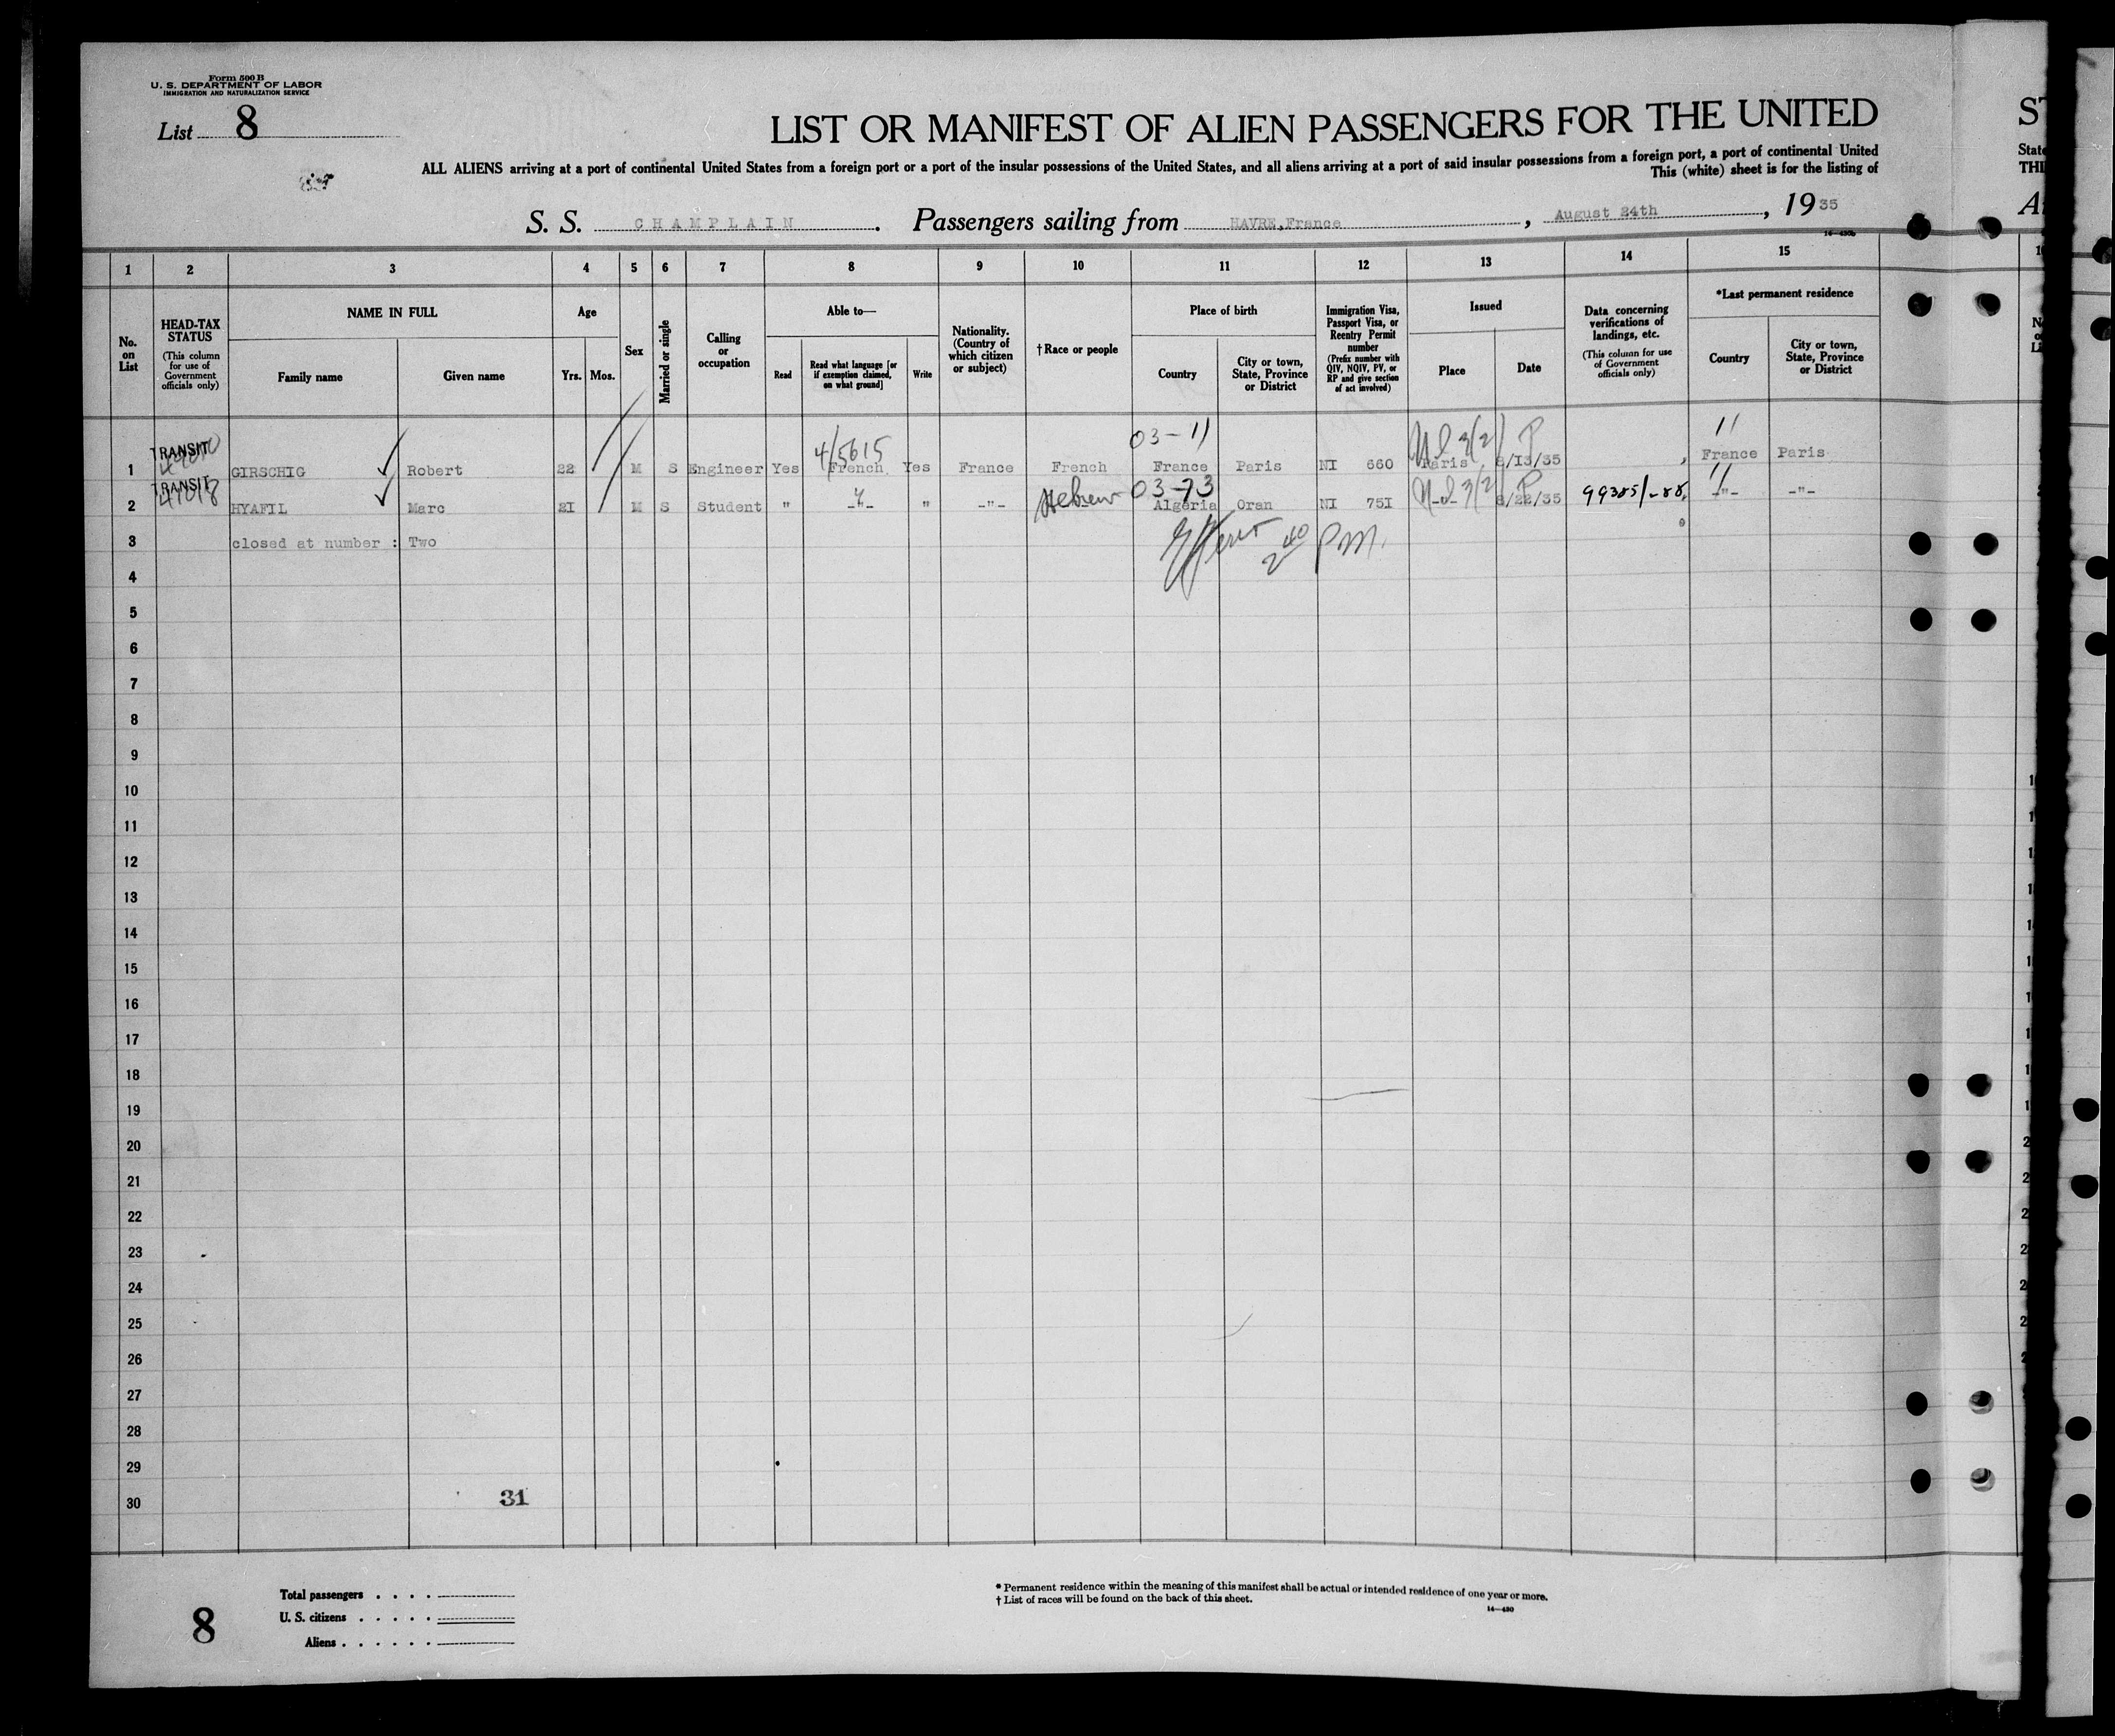 Form 500 B
U. S. DEPARTMENT OF LABOR
IMMIGRATION AND NATURALIZATION SERVICE
List 8
LIST OR MANIFEST OF ALIEN PASSENGERS FOR THE UNITED
ST
ALL ALIENS arriving at a port of continental United States from a foreign port or a port of the insular possessions of the United States, and all aliens arriving at a port of said insular possessions from a foreign port, a port of continental United
State
This (white) sheet is for the listing of
THI
S. S. CHAMPLAIN. Passengers sailing from HAVRE,France, August 24th, 1935
1 2 3 4 5 6 7 8 9 10 11 12 13 14 15
No. on List
HEAD-TAX STATUS
(This column for use of Government officials only)
NAME IN FULL
Family name
Given name
Age
Yrs. Mos.
Sex
Married or single
Calling or occupation
Able to—
Read
Read what language [or if exemption claimed, on what ground]
Write
Nationality. (Country of which citizen or subject)
† Race or people
Place of birth
Country
City or town, State, Province or District
Immigration Visa, Passport Visa, or Reentry Permit number
(Prefix number with QIV, NQIV, PV, or RP and give section of act involved)
Issued
Place
Date
Data concerning verifications of landings, etc.
(This column for use of Government officials only)
*Last permanent residence
Country
City or town, State, Province or District
4/5615 03-11 3(2) P 11
TRANSIT
1 GIRSCHIG Robert 22 M S Engineer Yes French Yes France French France Paris NI 660 Paris 8/13/35 France Paris
TRANSIT
03-73 3(2) P 11
2 HYAFIL Marc 21 M S Student " -"- " -"- Hebrew Algeria Oran NI 751 -"- 8/22/35 99385/-88 -"- -"-
3 closed at number : Two
2 40 P.M.
4
5
6
7
8
9
10
11
12
13
14
15
16
17
18
19
20
21
22
23
24
25
26
27
28
29
30
31
8
Total passengers
U. S. citizens
Aliens
* Permanent residence within the meaning of this manifest shall be actual or intended residence of one year or more.
† List of races will be found on the back of this sheet.
14—430